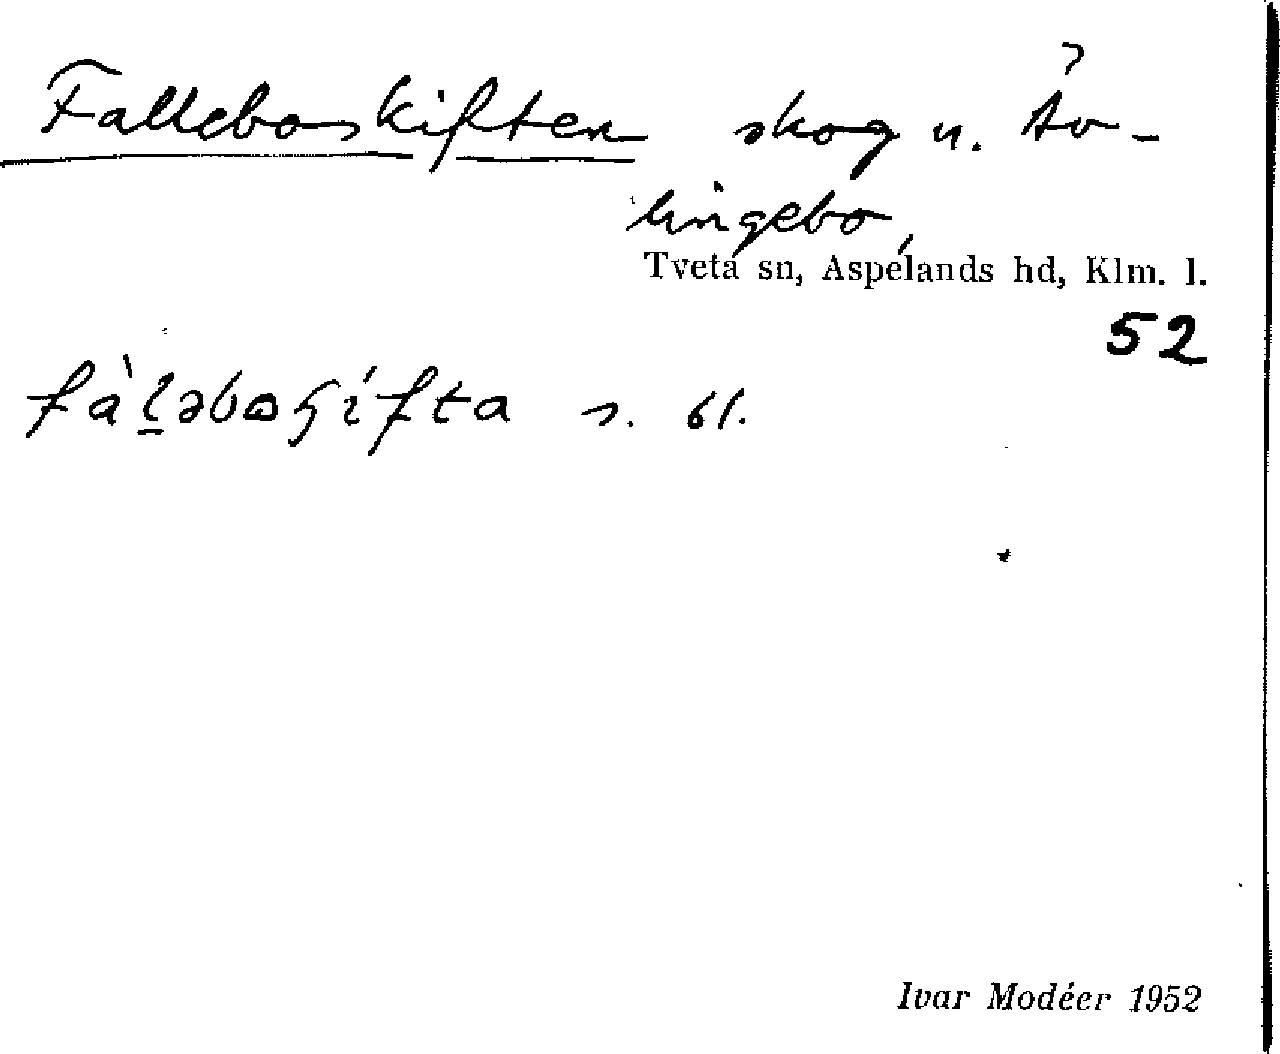 Falleboskiften skog u. Äv-
lingebo,
Tveta sn, Aspelands hd, Klm. l.
52
s. bf.
Ivar Modéer 1952